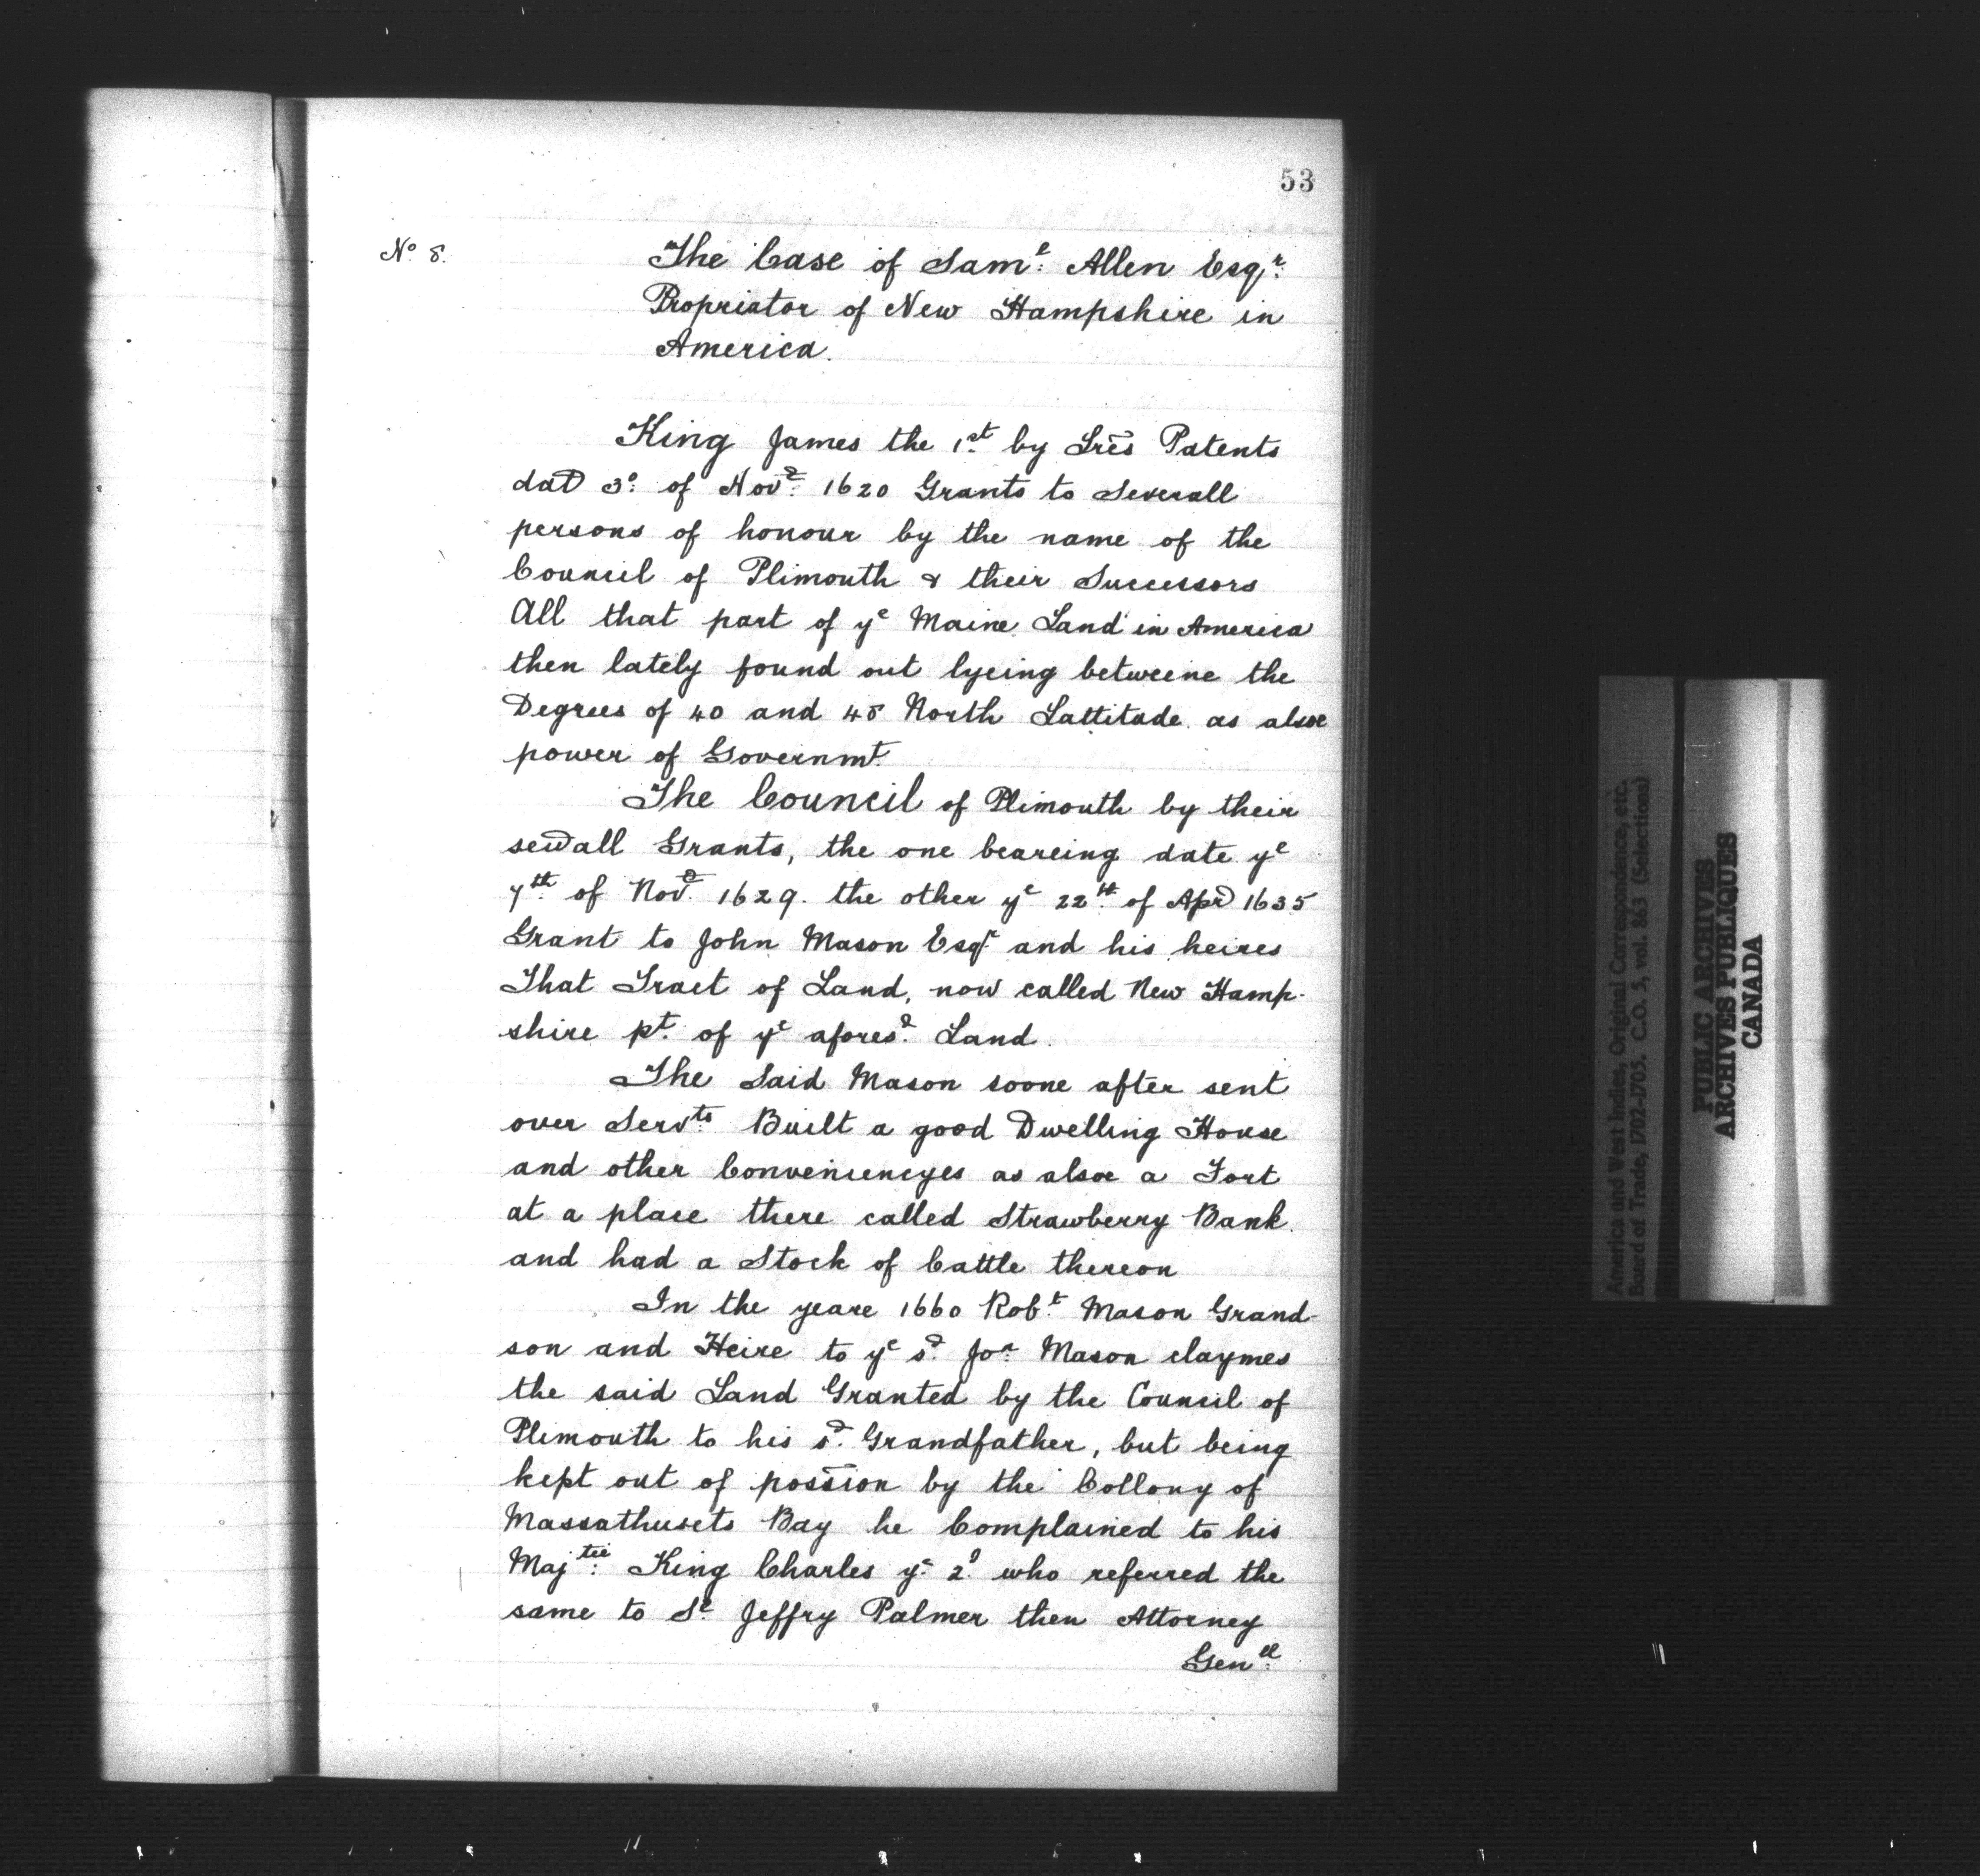 53
No. 8.
The Case of Saml: Allen Esqr:
Propriator of New Hampshire in
America.
King James the 1st by Lrēs Patents
dat 3o: of Novr: 1620 Grants to Severall
persons of honour by the name of the
Council of Plimouth & their Successors
All that part of ye Maine Land in America
then lately found out lyeing betweene the
Degrees of 40 and 48 North Lattitude as alsoe
power of Governmt.
The Council of Plimouth by their
sevall Grants, the one beareing date ye
7th of Novr. 1629. the other ye 22th: of Apr 1635
Grant to John Mason Esqr and his heires
That Tract of Land, now called New Hamp-
shire pt. of ye aforesd. Land.
The Said Mason soone after sent
over Servts: Built a good Dwelling House
and other Conveniencyes as alsoe a Fort
at a place there called Strawberry Bank
and had a Stock of Cattle thereon
In the yeare 1660 Robt. Mason Grand-
son and Heire to ye sd. Jon: Mason claymes
the said Land Granted by the Council of
Plimouth to his sd. Grandfather, but being
kept out of possion by the Collony of
Massathusets Bay he Complained to his
Majtie: King Charles ye 2d. who referred the
same to Sr. Jeffry Palmer then Attorney
Genll:
America and West Indies, Original Correspondence, etc.
Board of Trade, 1702-1705. C.O. 5, vol. 863 (Selections)
PUBLIC ARCHIVES
ARCHIVES PUBLIQUES
CANADA